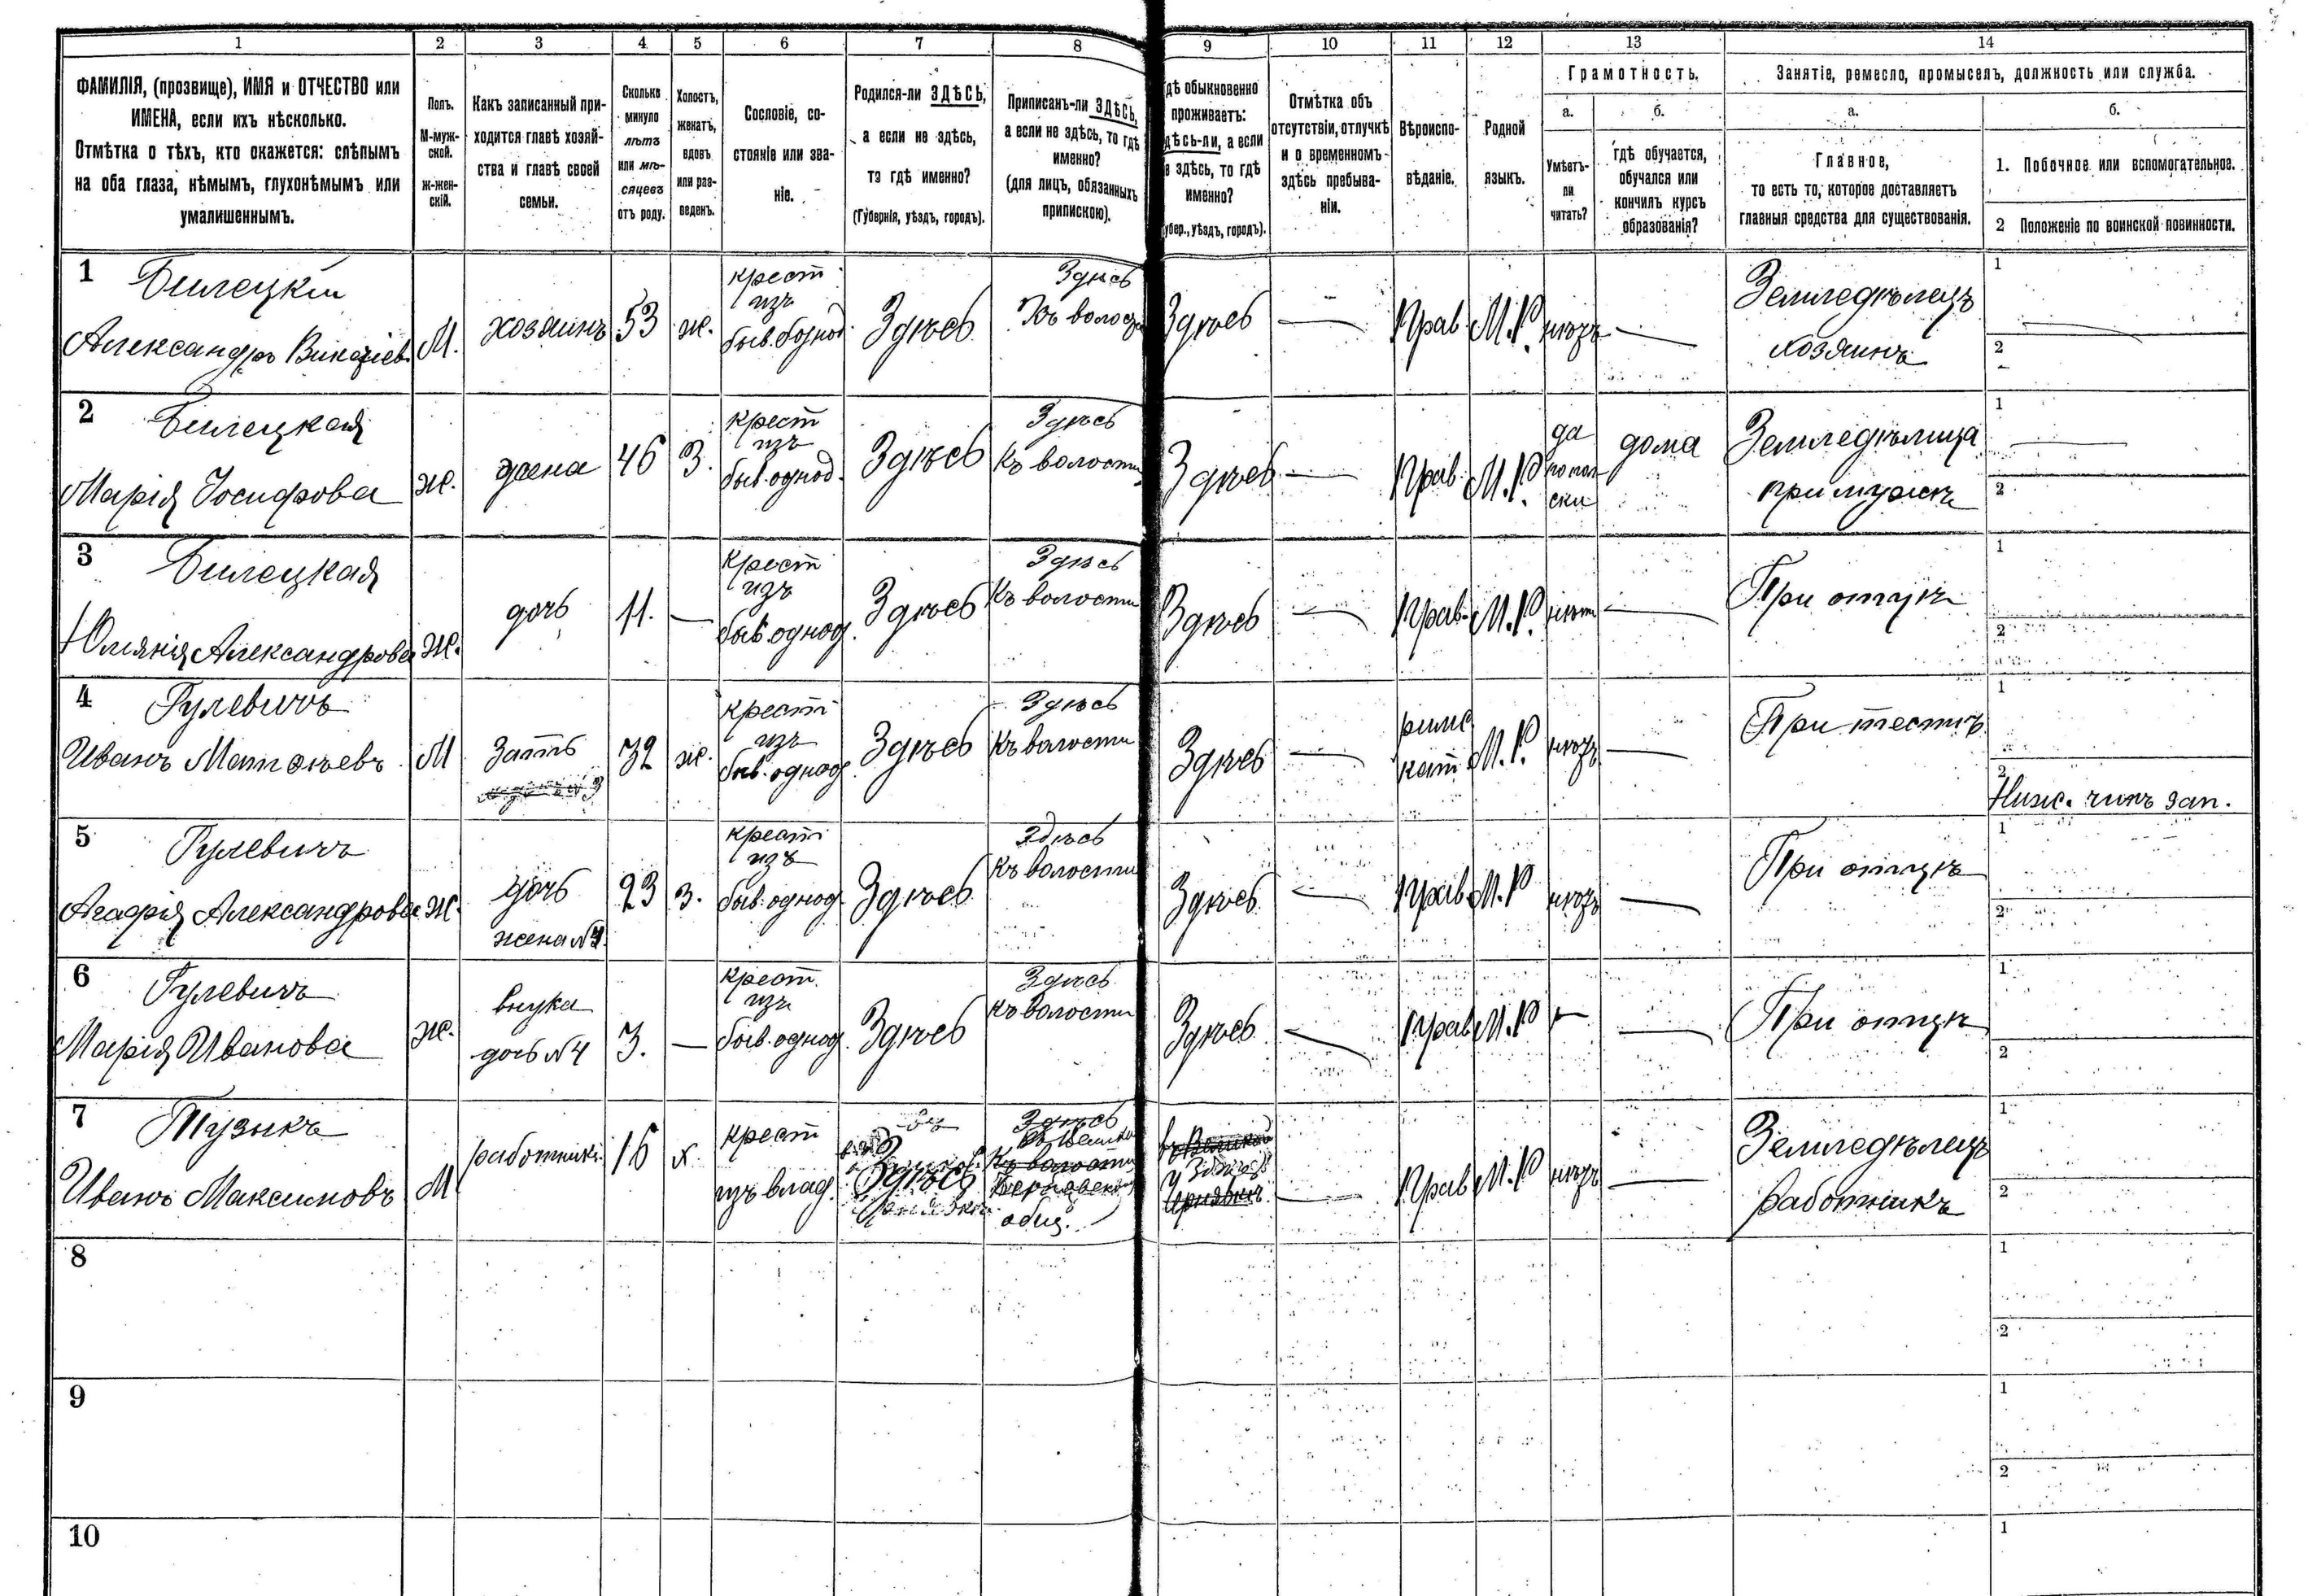 1 2 3 4 5 6 7 8 9 10 11 12 13 14
ФАМИЛІЯ, (прозвище), ИМЯ и ОТЧЕСТВО или
ИМЕНА, если ихъ нѣсколько.
Отмѣтка о тѣхъ, кто окажется: слѣпымъ
на оба глаза, нѣмымъ, глухонѣмымъ или
умалишеннымъ.
Полъ.
М-муж-
ской.
ж-жен-
скій.
Какъ записанный при-
ходится главѣ хозяй-
ства и главѣ своей
семьи.
Сколько
минуло
лѣтъ
или мѣ-
сяцевъ
отъ роду.
Холостъ,
женатъ,
вдовъ
или раз-
веденъ.
Сословіе, со-
стояніе или зва-
ніе.
Родился-ли ЗДѢСЬ,
а если не здѣсь,
то гдѣ именно?
(Губернія, уѣздъ, городъ).
Приписанъ-ли ЗДѢСЬ,
а если не здѣсь, то гдѣ
именно?
(для лицъ, обязанныхъ
припискою).
дѣ обыкновенно
проживаетъ:
дѣсь-ли, а если
е здѣсь, то гдѣ
именно?
убер., уѣздъ, городъ).
Отмѣтка объ
отсутствіи, отлучкѣ
и о временномъ
здѣсь пребыва-
ніи.
Вѣроиспо-
вѣданіе.
Родной
языкъ.
Грамотность.
а.
Умѣетъ-
ли
читать?
б.
гдѣ обучается,
обучался или
кончилъ курсъ
образованія?
Занятіе, ремесло, промыселъ, должность или служба.
а.
Главное,
то есть то, которое доставляетъ
главныя средства для существованія.
б.
1. Побочное или вспомогательное.
2 Положеніе по воинской повинности.
1 Билецкій
Александръ
М.
хозяинъ
53
ж.
крест
изъ
быв.
Здѣсь
Здѣсь
Къ
Здѣсь
—
Прав.
М.Р.
—
Земледѣлецъ
хозяинъ
1
2
2 Билецкая
Марія Іосифова
ж.
жена
46
З.
крест
изъ
быв. однод.
Здѣсь
Здѣсь
къ волости
Здѣсь
—
Прав.
М.Р.
да
дома
Земледѣлица
при мужѣ
1
2
3 Билецкая
Юлянія Александрова
ж.
дочь
11.
—
крест
изъ
быв. однод.
Здѣсь
Здѣсь
Къ волости
Здѣсь
—
Прав.
М.Р.
—
При отцѣ
1
2
4 Гулевичъ
Иванъ Матѳѣевъ
М
Зять
32
ж.
крест
изъ
быв. однод
Здѣсь
Здѣсь
Къ волости
Здѣсь
—
римс
кат
М.Р.
—
При тестѣ
1
2
Ниж. чинъ зап.
5 Гулевичъ
Агафія Александрова
ж.
дочь
жена №4.
23
з.
крест
изъ
быв. однод.
Здѣсь
Здѣсь
Къ волости
Здѣсь
—
Прав.
М.Р
—
При отцѣ
1
2
6 Гулевичъ
Марія Иванова
ж.
внука
дочь №4
3.
—
крест
изъ
быв. однод.
Здѣсь
Здѣсь
къ волости
Здѣсь
—
Прав
М.Р
—
—
При отцѣ
1
2
7 Тузикъ
Иванъ Максимовъ
М
работникъ
16
х.
крест
изъ влад.
Здѣсь
Здѣсь
общ.
—
Прав
М.Р
—
Земледѣлецъ
работникъ
1
2
8
1
2
9
1
2
10
1